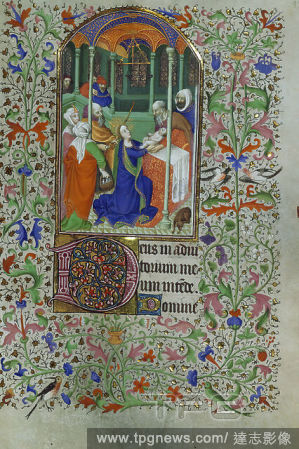 Deus in adiu
torium me
um intede
Domine
TPG
www.tpgnews.com/ 達志影像